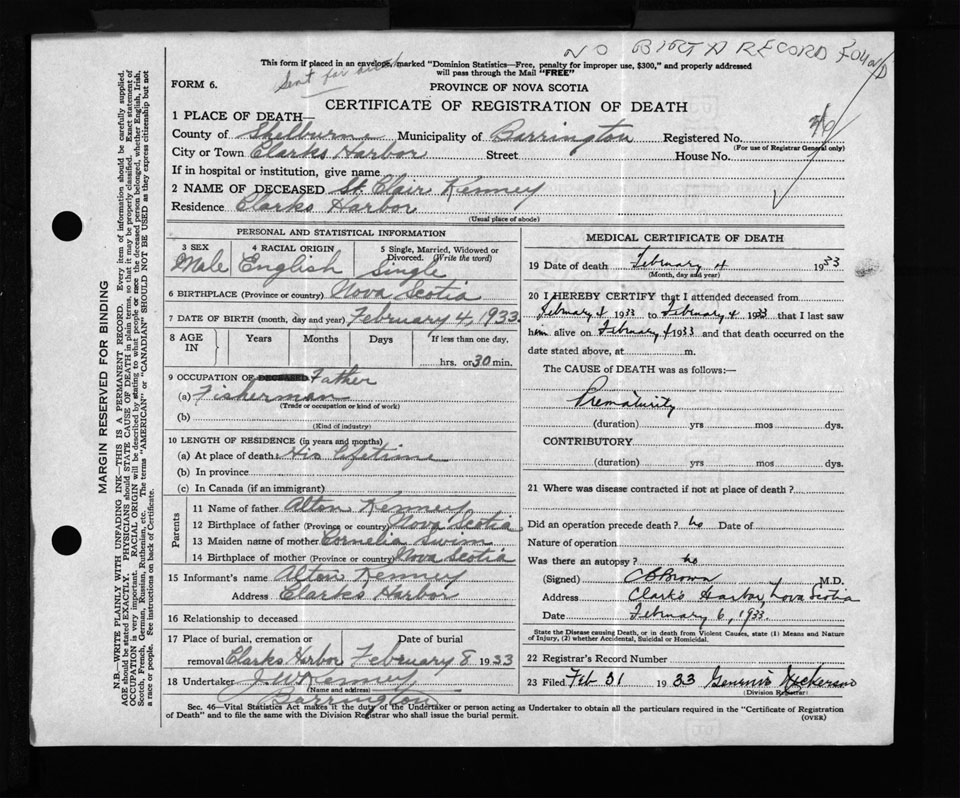 NO BIRTH RECORD FOUND
This form if placed in an envelope, marked "Dominion Statistics—Free, penalty for improper use, $300," and properly addressed
will pass through the Mail "FREE"
Sent for
FORM 6.
PROVINCE OF NOVA SCOTIA
CERTIFICATE OF REGISTRATION OF DEATH
1 PLACE OF DEATH—
County of Shelburne Municipality of Barrington Registered No.
(For use of Registrar General only)
City or Town Clarks Harbor Street House No.
If in hospital or institution, give name
2 NAME OF DECEASED St. Clair Kenney
Residence Clarks Harbor
(Usual place of abode)
PERSONAL AND STATISTICAL INFORMATION
3 SEX 4 RACIAL ORIGIN 5 Single, Married, Widowed or
Divorced. (Write the word)
Male English Single
6 BIRTHPLACE (Province or country) Nova Scotia
7 DATE OF BIRTH (month, day and year) February 4, 1933.
8 AGE IN Years Months Days If less than one day,
hrs. or 30 min.
9 OCCUPATION OF DECEASED Father
(a) Fisherman
(Trade or occupation or kind of work)
(b)
(Kind of industry)
10 LENGTH OF RESIDENCE (in years and months)
(a) At place of death. His lifetime
(b) In province
(c) In Canada (if an immigrant)
Parents
11 Name of father Alton Kenney
12 Birthplace of father (Province or country) Nova Scotia
13 Maiden name of mother Cornelia Swim
14 Birthplace of mother (Province or country) Nova Scotia
15 Informant's name Alton Kenney
Address Clarks Harbor
16 Relationship to deceased
17 Place of burial, cremation or Date of burial
removal Clarks Harbor February 8 1933
18 Undertaker J. W Kenney
(Name and address)
Barrington
MEDICAL CERTIFICATE OF DEATH
19 Date of death February 4 1933
(Month, day and year)
20 I HEREBY CERTIFY that I attended deceased from
February 4 1933 to February 4 1933 that I last saw
him alive on February 4 1933 and that death occurred on the
date stated above, at m.
The CAUSE OF DEATH was as follows:—
Prematurity
(duration) yrs mos dys.
CONTRIBUTORY
(duration) yrs mos dys.
21 Where was disease contracted if not at place of death?
Did an operation precede death? no Date of
Nature of operation
Was there an autopsy? no
(Signed) C B Brown M.D.
Address Clark's Harbor, Nova Scotia
Date February 6, 1933.
State the Disease causing Death, or in death from Violent Causes, state (1) Means and Nature
of Injury, (2) whether Accidental, Suicidal or Homicidal.
22 Registrar's Record Number
23 Filed Feb 31 1933 Nickerson
(Division Registrar)
Sec. 46—Vital Statistics Act makes it the duty of the Undertaker or person acting as Undertaker to obtain all the particulars required in the "Certificate of Registration
of Death" and to file the same with the Division Registrar who shall issue the burial permit.
(OVER)
MARGIN RESERVED FOR BINDING
N.B.—WRITE PLAINLY WITH UNFADING INK—THIS IS A PERMANENT RECORD. Every item of information should be carefully supplied.
AGE should be stated EXACTLY. PHYSICIANS should STATE CAUSE OF DEATH in plain terms, so that it may be properly classified. Exact statement of
OCCUPATION is very important. RACIAL ORIGIN will be described by stating to what people or race the deceased person belonged, whether English, Irish,
Scotch, French, German, Russian, Ruthenian, etc. The terms "AMERICAN" or "CANADIAN" SHOULD NOT BE USED as they express citizenship but not
a race or people. See instructions on back of Certificate.